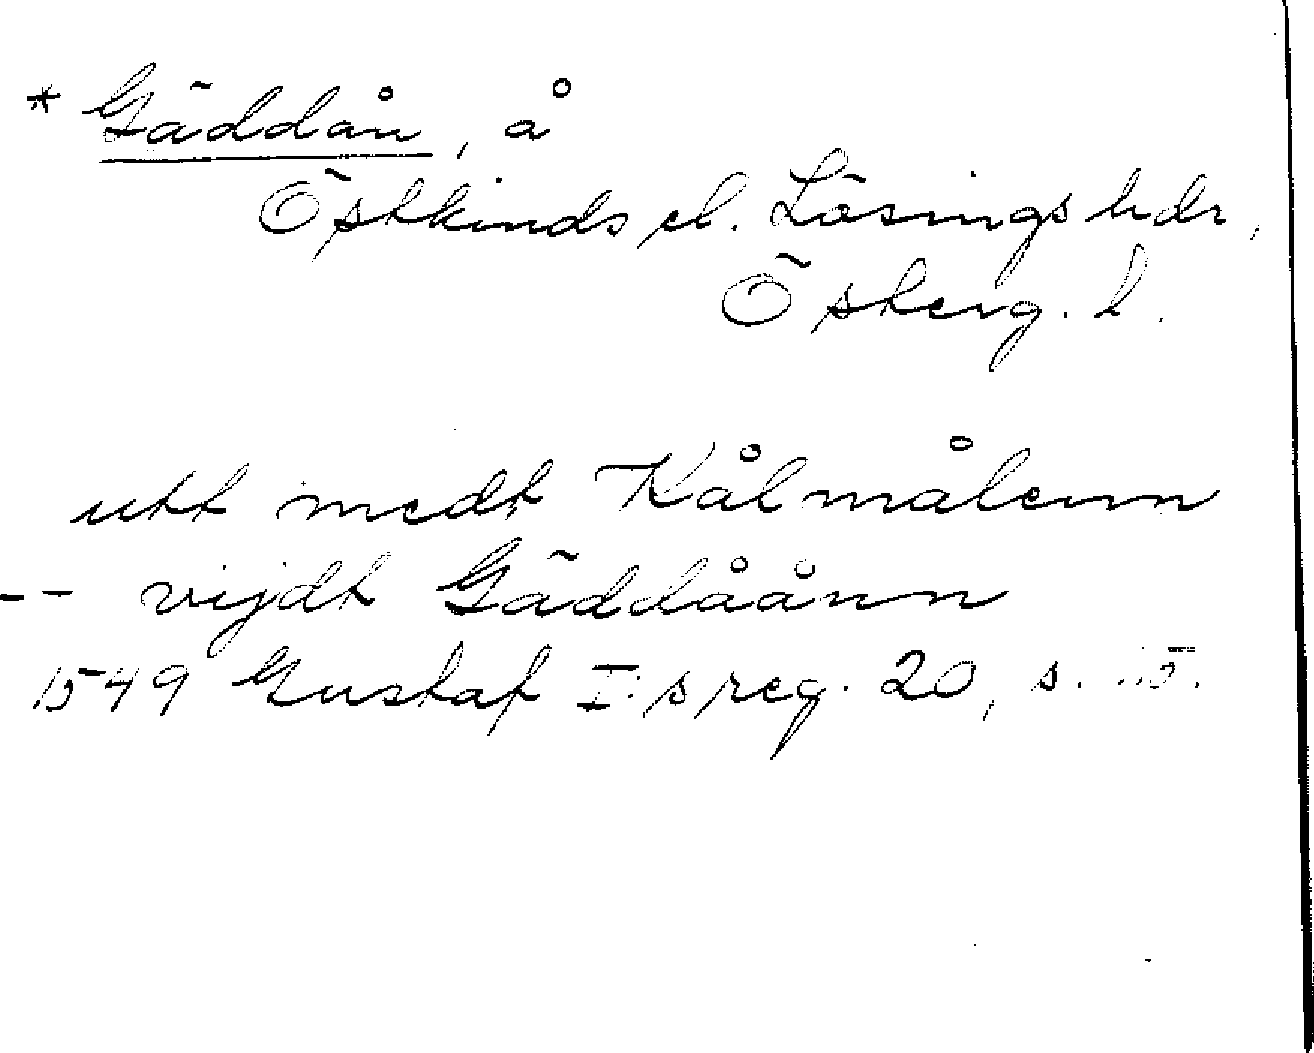 * Gäddån, å
Östkinds el. Lösings hdr,
Österg. l.
utt medt Kålmålenn
-- vijdt Gäddåånn
1549 Gustaf I:s reg. 20, s.